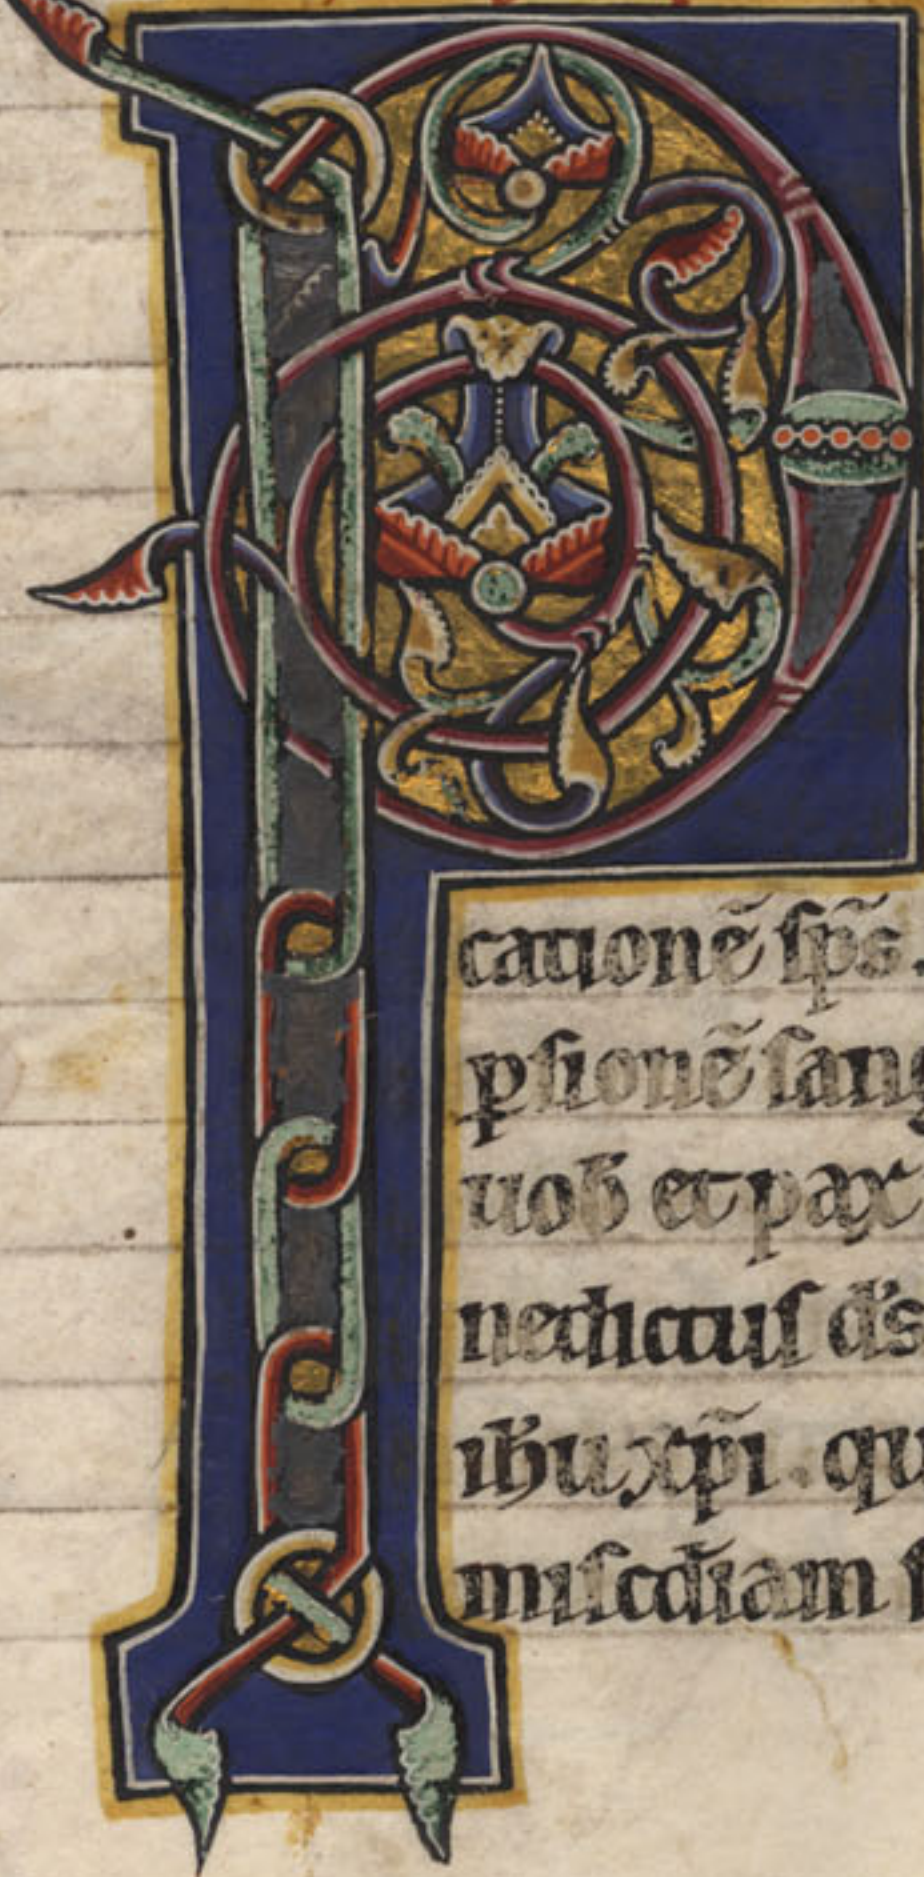 P
cationē sp̄s.
ꝑsionē sang
uob̄ et pax
nedictus d̄s
ih̄u xp̄i. qu
misc̄diam